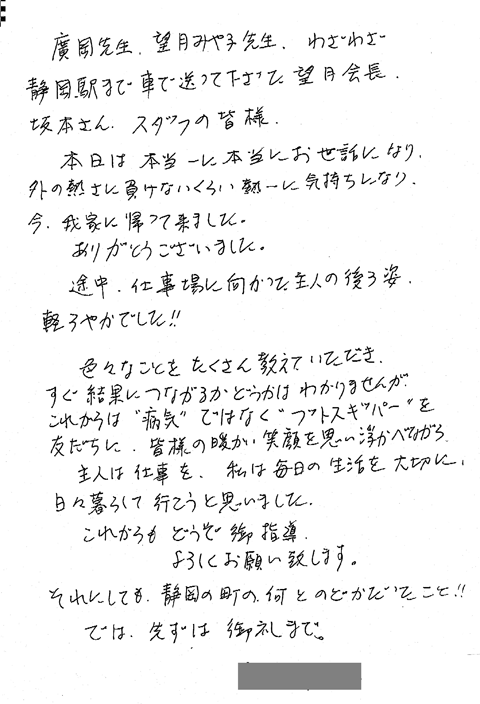 廣岡先生、望月みや子先生、わざわざ
静岡駅まで車で送って下さった望月会長、
坂本さん、スタッフの皆様、
本日は本当ーに本当にお世話になり、
外の熱さに負けないくらい熱ーに気持ちになり、
今、我家に帰って来ました。
ありがとうございました。
途中、仕事場に向かった主人の後ろ姿、
軽ろやかでした!!
色々なことをたくさん教えていただき、
すぐ結果につながるかどうかはわかりませんが、
これからは"病気"ではなく"フットスギパー"を
友だちに、皆様の暖かい笑顔を思い浮かべながら、
主人は仕事を、私は毎日の生活を大切に、
日々暮らして行こうと思いました。
これからもどうぞ御指導、
よろしくお願い致します。
それにしても、静岡の町の、何とのどかだいたこと!!
では、先ずは御礼まで。